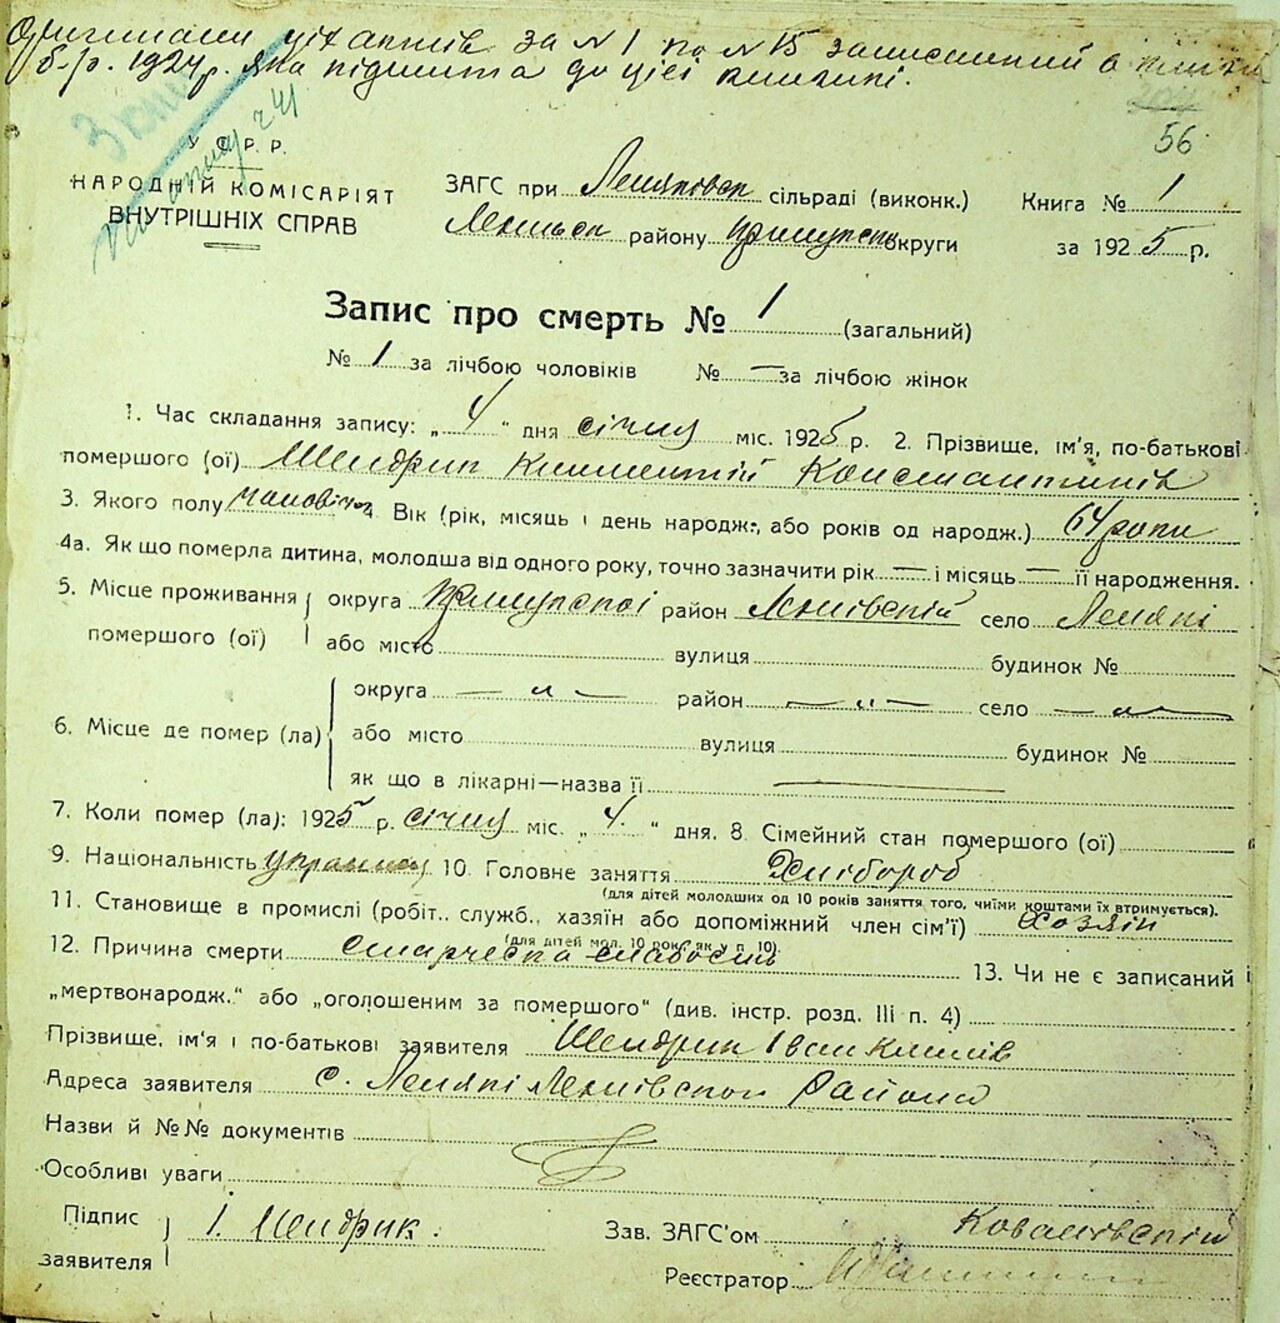 Оригинали цих актів за №1 по №15 записаний в
б.р. 1924 р. яка підшита до цієї книги.
56
У.С.Р.Р.
НАРОДНІЙ КОМІСАРІЯТ
ВНУТРІШНІХ СПРАВ
ЗАГС при Лемяківск сільраді (виконк.)
району Прилуцьк округи
Книга № 1
за 1925 р.
Запис про смерть № 1 (загальний)
№ 1 за лічбою чоловіків № — за лічбою жінок
1. Час складання запису: „ 4 “ дня січня міс. 1925 р. 2. Прізвище, ім'я, по-батькові
помершого (ої) Шендрик Климентій Константинів
3. Якого полу чоловічог 4. Вік (рік, місяць і день народж., або років од народж.) 64 роки
4а. Як що померла дитина, молодша від одного року, точно зазначити рік — і місяць — її народження.
5. Місце проживання помершого (ої) округа Прилуцької район село Лемякі
або місто вулиця будинок №
6. Місце де помер (ла) округа — „ — район — „ — село — „ —
або місто вулиця будинок №
як що в лікарні—назва її —
7. Коли помер (ла): 1925 р. січня міс. „ 4. “ дня. 8. Сімейний стан помершого (ої)
9. Національність 10. Головне заняття Хлібороб
(для дітей молодших од 10 років заняття того, чиїми коштами їх втримується).
11. Становище в промислі (робіт., служб., хазяїн або допоміжний член сім'ї) Хозяїн
(для дітей мол. 10 років як у п. 10).
12. Причина смерти старческа слабосий 13. Чи не є записаний
„мертвонародж.“ або „оголошеним за помершого“ (див. інстр. розд. III п. 4)
Прізвище, ім'я і по-батькові заявителя Шендрик Іван Климів
Адреса заявителя с. Лемякі Района
Назви й №№ документів
Особливі уваги
Підпис заявителя І. Шендрик.
Зав. ЗАГС'ом Ковалівській
Реєстратор